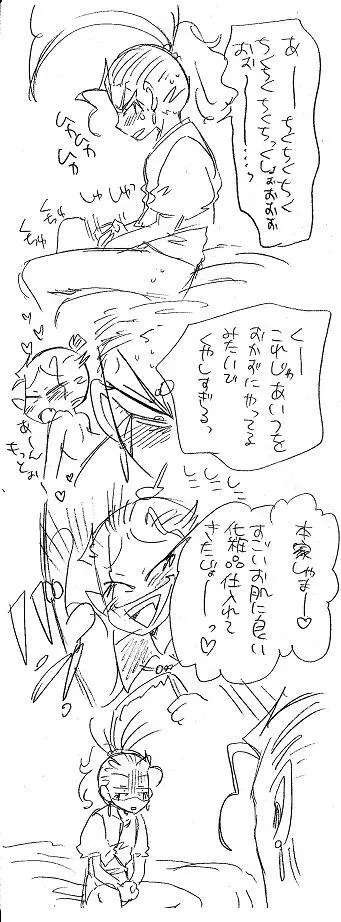 あーー
ちくちくちくちく
ちくちくちくちっくしょおおおお
おお……っ
ひゃ
ひゃ
ひゃ
しゅ
しゅっ
くちゅ
くちゅ
くーー
これじゃあいつを
おかずにやってる
みたいで
くやしすぎるっ
あーん
もっとぉ
本家しゃまー♡
すごいお肌に良い
化粧品仕入れて
きたじょーーっ♡